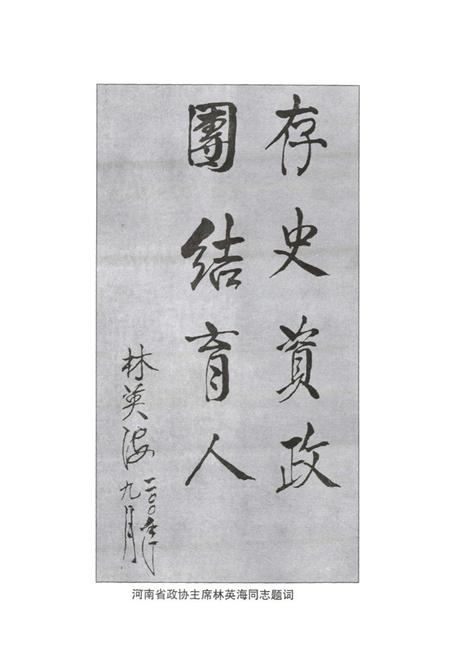 存史資政
團結育人
林英海
九月
河南省政协主席林英海同志题词